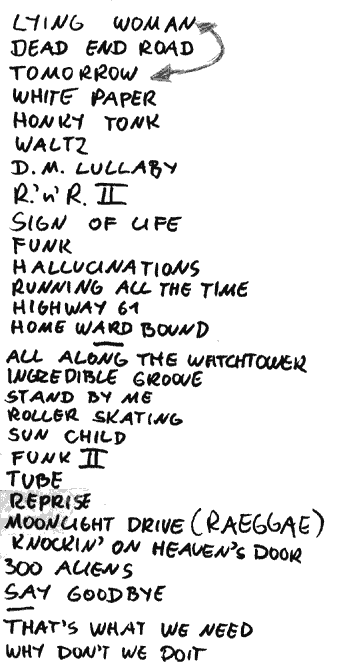 LYING WOMAN
DEAD END ROAD
TOMORROW
WHITE PAPER
HONKY TONK
WALTZ
D.M. LULLABY
R.'n' R. II
SIGN OF LIFE
FUNK
HALLUCINATIONS
RUNNING ALL THE TIME
HIGHWAY 61
HOME WARD BOUND
ALL ALONG THE WATCHTOWER
INCREDIBLE GROOVE
STAND BY ME
ROLLER SKATING
SUN CHILD
FUNK II
TUBE
REPRISE
MOONLIGHT DRIVE (RAEGGAE)
KNOCKIN' ON HEAVEN'S DOOR
300 ALIENS
SAY GOODBYE
THAT'S WHAT WE NEED
WHY DON'T WE DOIT